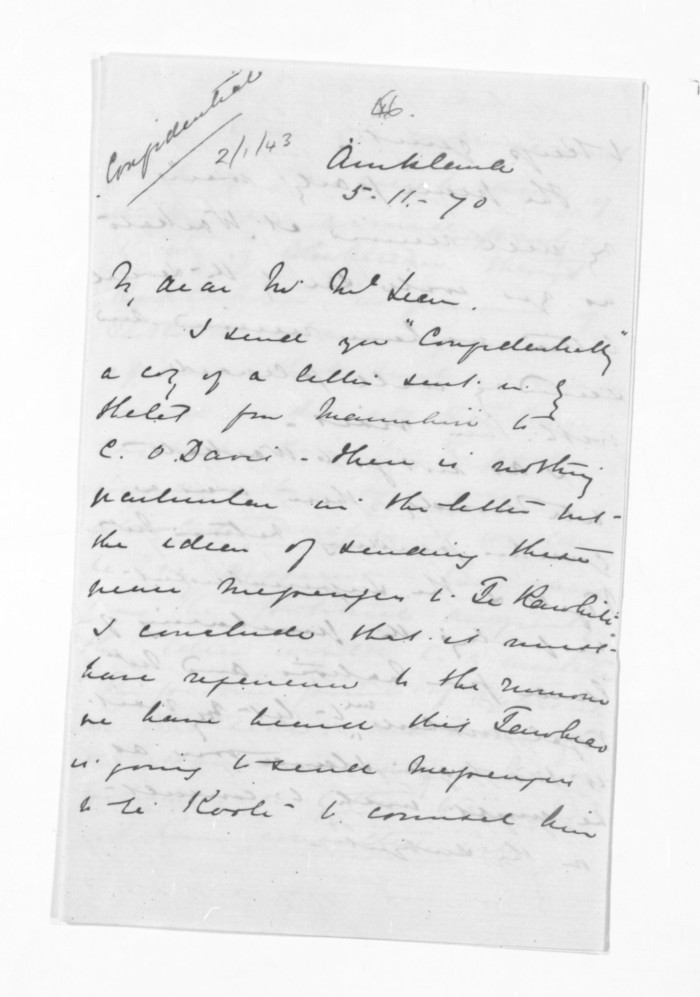 Confidential
46.
2/1/43
Auckland
5.11.-70
My dear Mr McLean.
I send you "Confidentially"
a copy of a letter sent in by
from Manuhiri to
C. O. Davis - there is nothing
particular in the letter but
the idea of sending these
peace messengers to Te
I conclude that it must
have reference to the rumour
we have heard that Tawhiao
is going to send messengers
to Te Kooti to counsel him